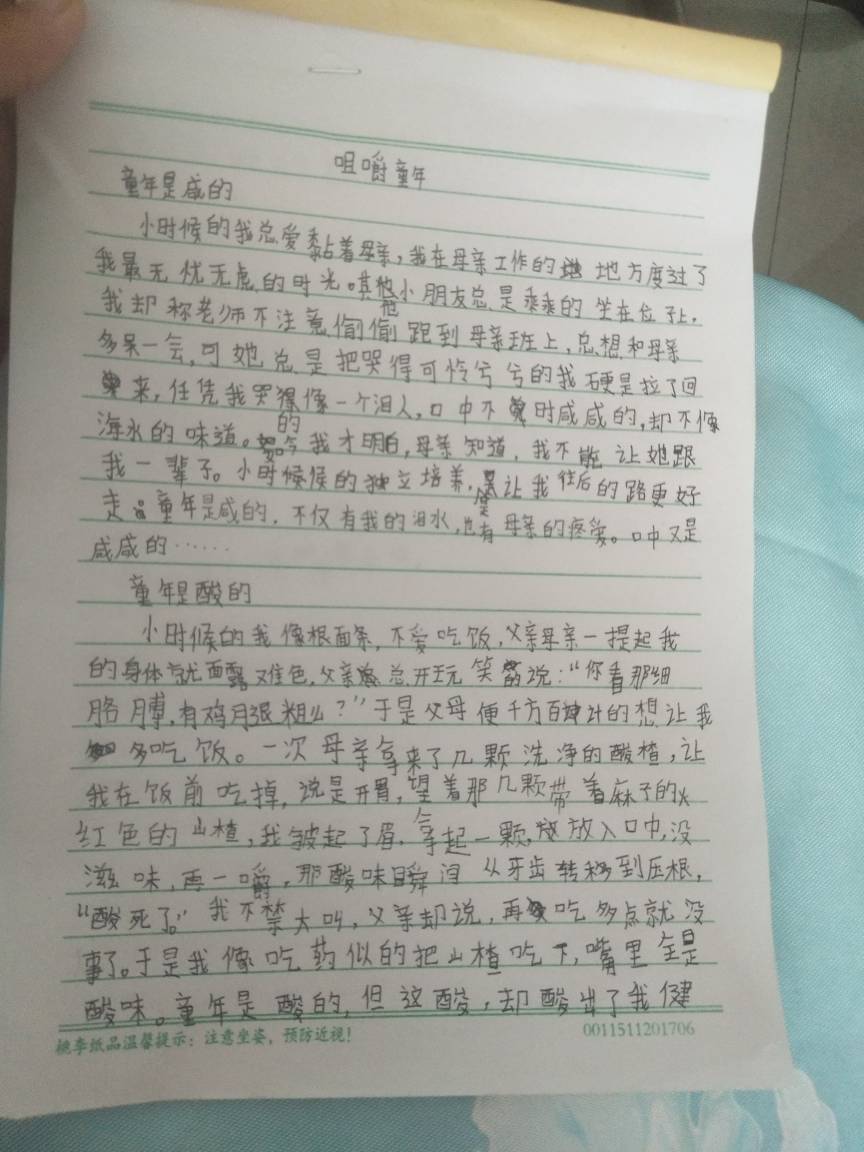 咀嚼童年
童年是咸的
小时候的我总爱黏着母亲，我在母亲工作的地方度过了
我最无忧无虑的时光。其他小朋友总是乖乖的坐在位子上，
我却称老师不注意偷偷跑到母亲班上，总想和母亲
多呆一会，可她总是把哭得可怜兮兮的我硬是拉了回
来，任凭我哭得像一个泪人，口中不时咸咸的，却不像
海水的味道。如今的我才明白，母亲知道，我不能让她跟
我一辈子。小时候候的独立培养，是让我往后的路更好
走。童年是咸的，不仅有我的泪水，也有母亲的疼爱。口中又是
咸咸的……
童年是酸的
小时候的我像根面条，不爱吃饭，父亲母亲一提起我
的身体就面露难色，父亲总开玩笑说：“你看那细
胳膊，有鸡腿粗么？”于是父母便千方百计的想让我
多吃饭。一次母亲拿来了几颗洗净的酸楂，让
我在饭前吃掉，说是开胃，望着那几颗带着麻子的火
红色的山楂，我皱起了眉，拿起一颗，放入口中，没
滋味，再一嚼，那酸味瞬间从牙齿转移到压根，
“酸死了。”我不禁大叫，父亲却说，再吃多点就没
事了。于是我像吃药似的把山楂吃下，嘴里全是
酸味。童年是酸的，但这酸，却酸出了我健
桃李纸品温馨提示：注意坐姿，预防近视！
0011511201706